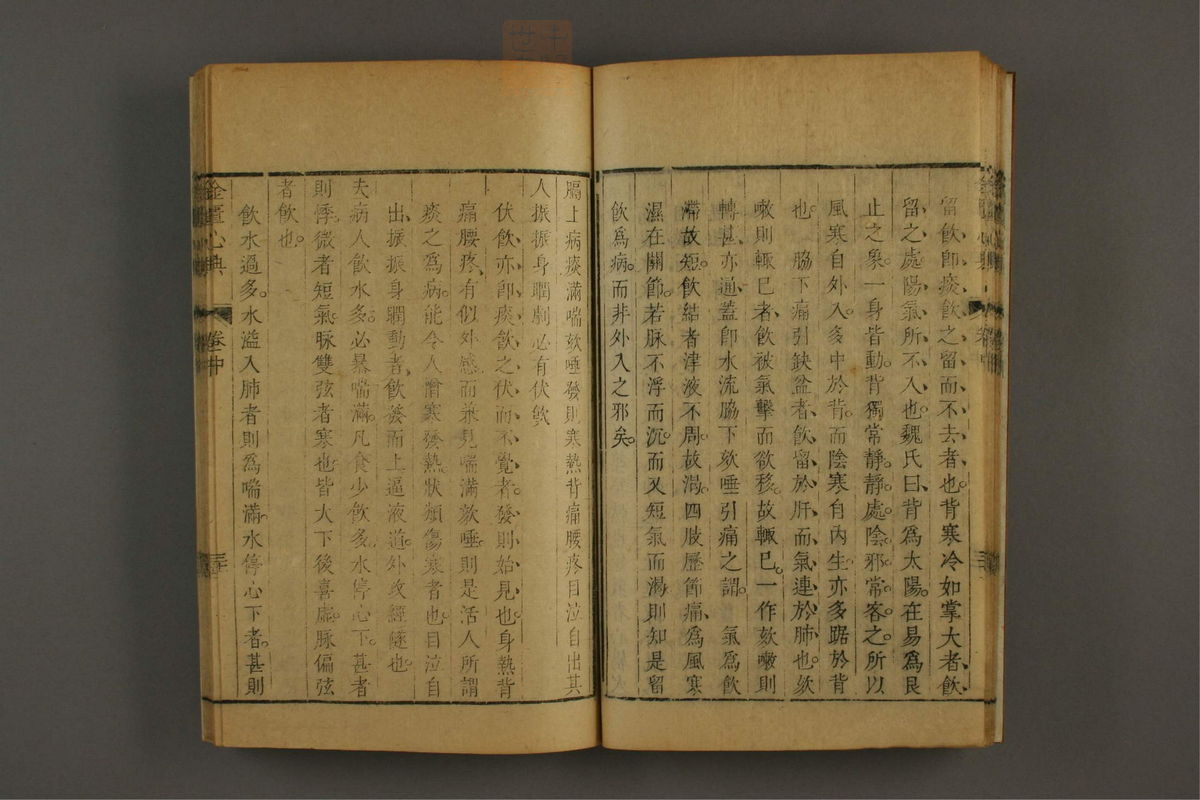 留飲卽痰飲之留而不去者也背寒冷如掌大者飲
留之處陽氣所不入也魏氏曰背爲太陽在易爲艮
止之象一身皆動背獨常靜靜處陰邪常客之所以
風寒自外入多中於背而陰寒自內生亦多踞於背
也　脇下痛引缺盆者飲留於肝而氣連於肺也欬
嗽則輒已者飲被氣擊而欲移故輒已一作欬嗽則
轉甚亦通蓋卽水流脇下欬唾引痛之謂　氣爲飲
滯故短飲結者津液不周故渴四肢歷節痛爲風寒
濕在關節若脉不浮而沉而又短氣而渴則知是留
飲爲病而非外入之邪矣
膈上病痰滿喘欬唾發則寒熱背痛腰疼目泣自出其
人振振身瞤劇必有伏飲
伏飲亦卽痰飲之伏而不覺者發則始見也身熱背
痛腰疼有似外感而兼見喘滿欬唾則是活人所謂
痰之爲病能令人憎寒發熱狀類傷寒者也目泣自
出振振身瞤動者飲發而上逼液道外攻經隧也
夫病人飲水多必暴喘滿凡食少飲多水停心下甚者
則悸微者短氣脉雙弦者寒也皆大下後喜虛脉偏弦
者飲也
飲水過多水溢入肺者則爲喘滿水停心下者甚則
金匱心典　卷中